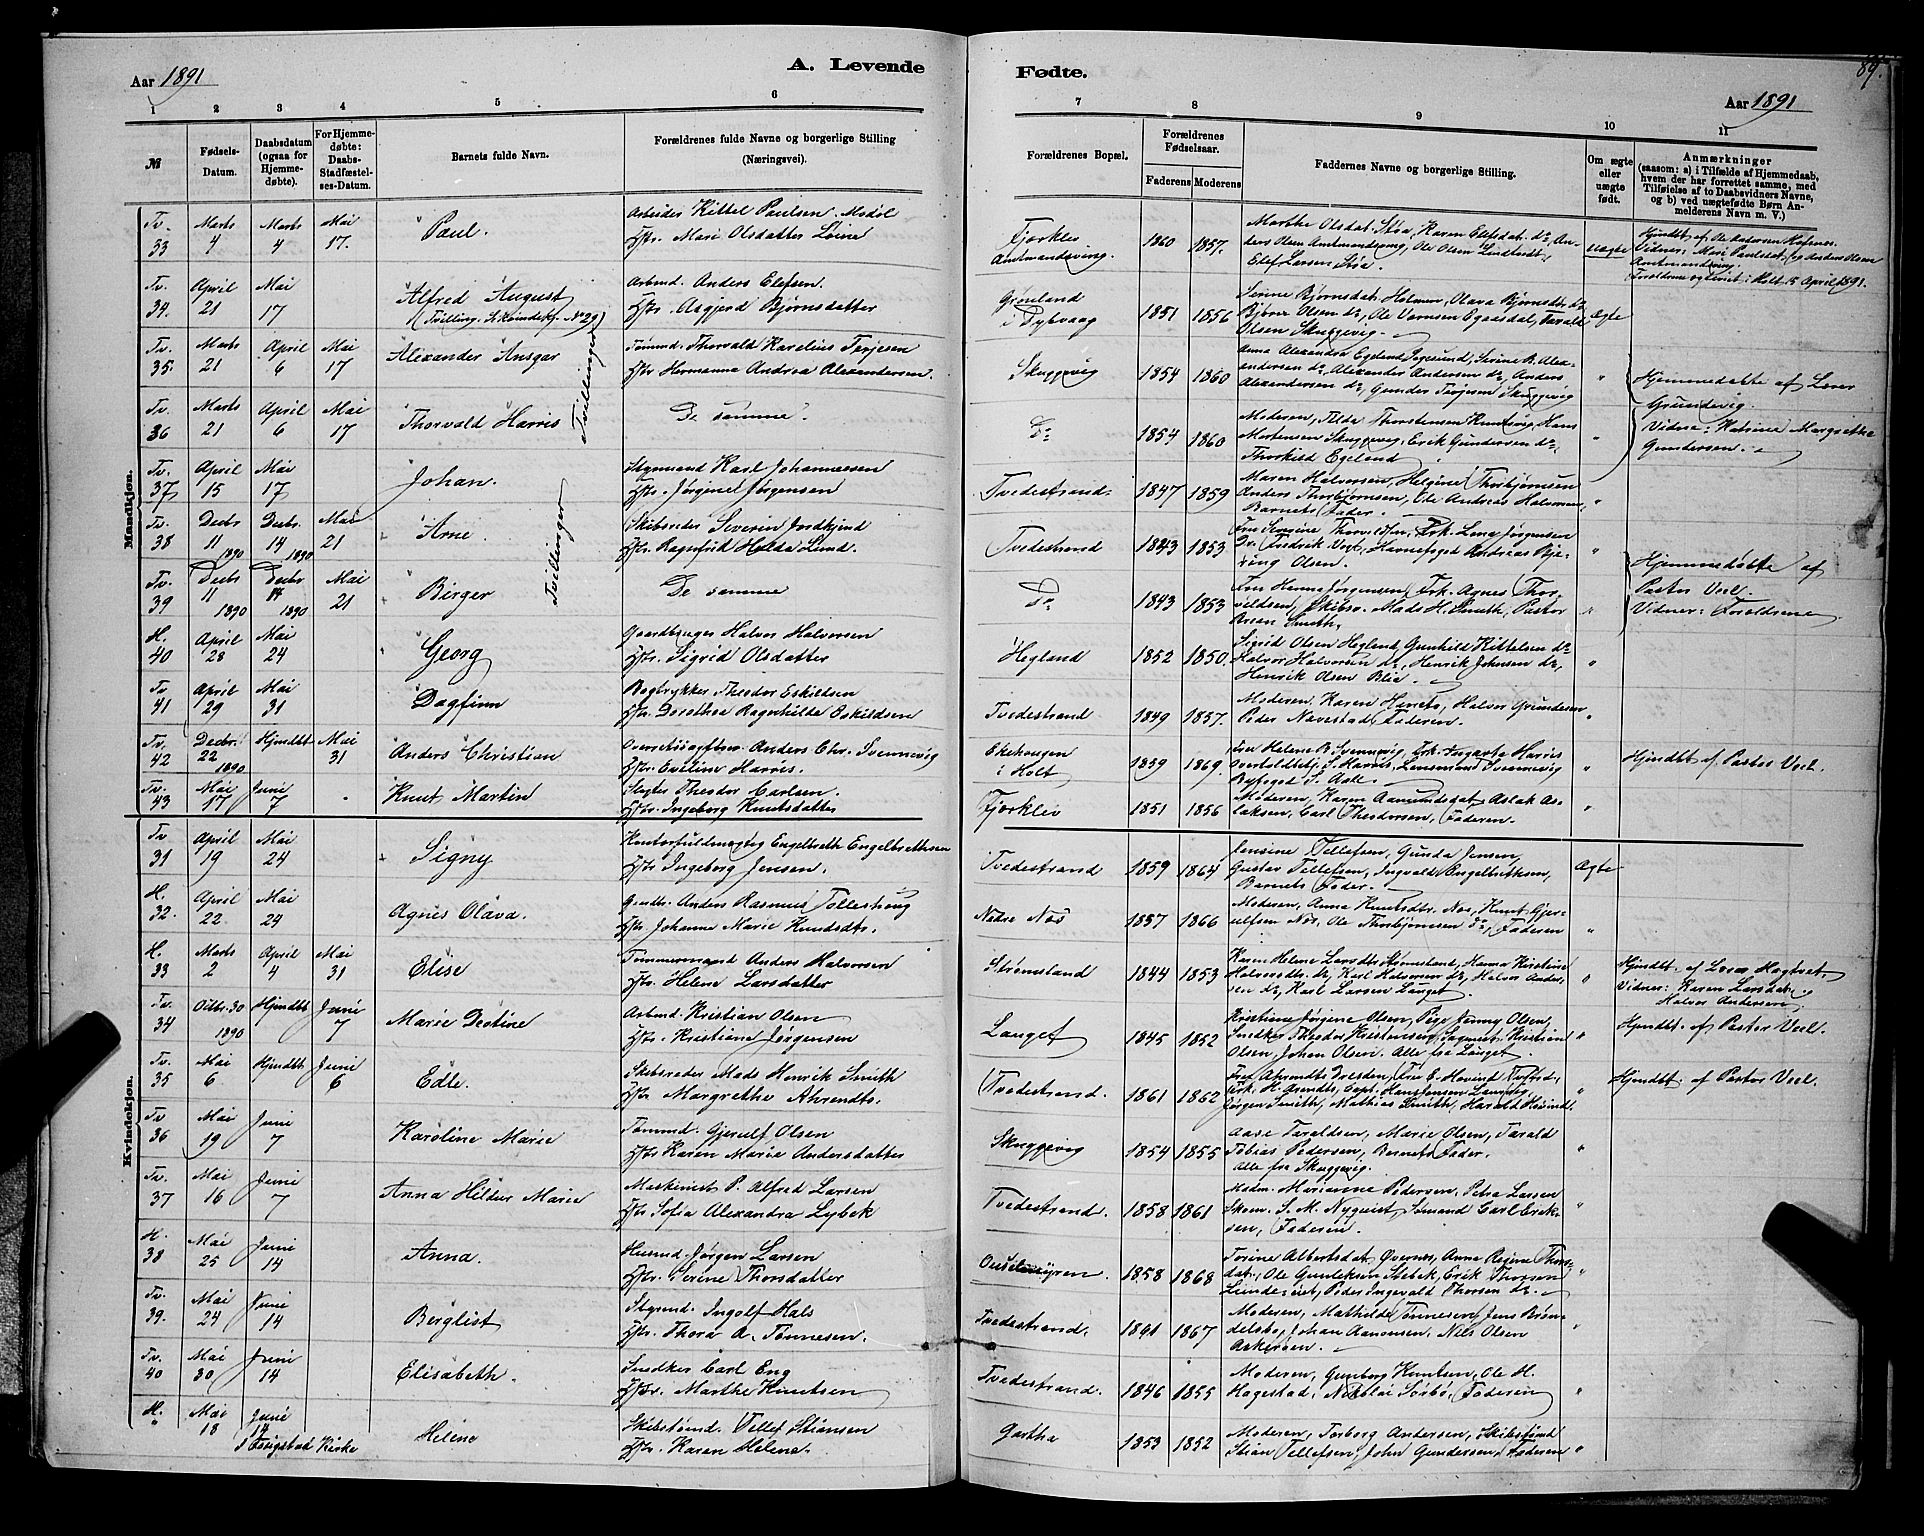 Aar 1891
A. Levende
1 2 3 4 5 6
№
Fødsels-Datum.
Daabsdatum (ogsaa for Hjemme-døbte).
For Hjemme-døbte: Daabs-Stadfæstel-ses-Datum.
Barnets fulde Navn.
Forældrenes fulde Navne og borgerlige Stilling
(Næringsvei).
Mandkjøn.
Tv. 33 Marts 4 Marts 4 Mai 17. Paul. Arbeider Kittel Paulsen
Hstr. Mari Olsdatter
Tv. 34. April 21 Mai 17 Alfred August Arbmd. Anders Elefsen.
(Tvilling. No 29) Hstr. Asgjerd Bjørnsdatter
Tv. 35. Marts 21 April 6 Mai 17 Alexander Ansgar Tømmd. Thorvald Karelius Terjesen
Hstr Hermanna Andrea Alexandersen.
Tv. 36 Marts 21 April 6 Mai 17 Thorvald Harris De samme.
Tvillinger
Tv. 37 April 15 Mai 17 Johan. Styrmand Karl Johannesen
Hstr. Jørgine Jørgensen
Tv. 38 Decbr 11 1890 Decbr. 14 1890 Mai 21 Arne. Skibsreder Severin
Hstr. Ragnfrid Hulda Lund.
Tv. 39 Decbr 11 1890 Decbr 14 1890 Mai 21 Birger De samme
Tvillinger
H. 40 April 28 Mai 24 Georg Gaardbruger Halvor Halvorsen
Hstr. Sigrid Olsdatter
Tv. 41 April 29 Mai 31 Dagfinn Bogtrykker Theodor Eskildsen
Hstr. Dorothea Ragnhilda Eskildsen
Tv. 42 Decbr. 22 1890 Hjmdbt Mai 31 Anders Christian Overretssagfører Anders Chr. Svennevig
Hstr. Eveline Harris.
Tv. 43 Mai 17 Juni 7 Knut Martin Slagter Theodor Carlsen.
Hstr. Ingeborg Knutsdatter
Kvindekjøn.
Tv 31 April 19 Mai 24 Signy Kontorfuldmægtig Engelbreth Engelbrethsen
Hstr. Ingeborg Jensen.
H. 32. April 22 Mai 24 Agnes Olava. Gmdbr. Anders Rasmus
Hstr. Johanne Marie Knudsdtr.
H. 33 Marts 2 April 4 Mai 31 Elise Tømmermand Anders Halvorsen
Hstr. Helene Larsdatter
Tv. 34 Octbr. 30 1890 Hjmdbt Juni 7 Marie Arbmd Kristian Olsen
Hstr. Kristiane Jørgensen
Tv. 35 Mai 6 Hjmdbt Juni 6 Edle. Skibsreder Mads Henrik Smith
Hstr. Margrethe Ahrendts.
Tv 36 Mai 19 Juni 7 Karoline Marie Tømmd. Gjerulf Olsen
Hstr. Karen Marie Andersdatter
Tv. 37 Mai 16 Juni 7 Anna Hildur Marie Maskinist P. Alfred Larsen
Hstr Sofia Alexandra Lybek
H. 38 Mai 25 Juni 14 Anna. Husmd. Jørgen Larsen
Hstr. Serine Thorsdatter
Tv. 39. Mai 24 Juni 14 Bergliot Styrmd. Ingolf Hals
Hstr. Thora A. Tønnesen.
Tv. 40 Mai 30 Juni 14 Elisabeth. Snedker Carl Eng
Hstr. Marthe Knutsen
H. " Mai 18 Juni 14 Helene Skibstømd. Tellef Stiansen
Hstr. Karen Helene.
Kirke
89.
Fødte.
Aar 1891
7 8 9 10 11
Forældrenes Bopæl.
Forældrenes Fødselsaar.
Faderens Moderens
Faddernes Navne og borgerlige Stilling.
Om ægte eller uægte født.
Anmærkninger
(saasom: a) i Tilfælde af Hjemmedaab,
hvem der har forrettet samme, med
Tilføielse af to Daabsvidners Navne,
og b) ved uægtefødte Børn An-
melderens Navn m. V.)
Fjærklev 1860 1857. Marthe Olsdat. Støa, Karen Elefsdat. do, An-
Amtmandsving. ders Olsen Amtmandsving, Ole Olsen
Elef Larsen, Støa. uægte
Hjmdbt. af Ole Andersen
Vidner: Mari Paulsdat. og Anders Olsen
Amtmandsving
15 April 1891.
Grønland i Dybvaag 1851 1856 Serine Bjørnsdat. Holmen, Olava Bjørnsdtr. do
Bjørn Olsen do, Ole Egaasdal, Tarald
Olsen Skuggevig. Ægte
Skuggevig 1854 1860 Anna Alexandra Egeland, Serine B. Alex-
andersen do, Alexander Andersen do, Anders
Alexandersen do, Gunder Terjesen Skuggevig "
Hjemmedøbte af Lærer
Grundevig.
Vidne: Katrine Margrethe
Gundersen.
Do 1854 1860 Moderen, Tilda Thorstensen
Mortensen Skuggevig, Erik Gundersen do,
Thorkild Egeland "
Tvedestrand. 1847 1859 Maren Halvorsen, Helgine Thorbjørnsen
Anders Thorbjørnsen, Ole Andreas Halvorsen
Barnets Fader. "
Tvedestrand 1843 1853 Fru Severine Frk. Lena Jørgensen
Dr. Fredrik Andreas Bje-
ring Olsen. "
Do 1843 1853 Fru Hanne Jørgensen, Frk. Agnes Thor-
valdsen, Skibsr. Mads H. Smith, Pastor
Smith. "
Hjemmedøbte af
Pastor Veel.
Vidner: Forældrene
Hegland 1852 1850. Sigrid Olsen Hegland, Gunhild Kittelsen do
Halvor Halvorsen do, Henrik Johnsen do,
Henrik Olsen Blie. "
Tvedestrand 1849 1857. Moderen, Karen Halvor Grundesen
Peder Navestad, Faderen. "
Ekehaugen i Holt 1859 1869. Fru Helene B. Svennevig, Frk. Harris
S. Harris, Lensmand Svennevig
Byfoged S. Aall. "
Hjmdbt af Pastor Veel.
Fjærklev 1851 1856 Moderen, Karen Aamundsdat. Aslak As-
laksen, Carl Theodorsen, Faderen. "
Tvedestrand 1859 1864 Jensine Tellefsen, Gunda Jensen,
Gustav Tellefsen, Ingvald Engelbrethsen,
Barnets Fader. Ægte
Nedre Næs 1857 1866 Moderen, Anna Knutsdtr. Næs, Knut Gjer-
ulfsen Næs, Ole Thorbjørnsen do, Faderen "
Strømsland 1844 1853 Karen Helene Larsdtr. Strømsland, Hanna Kirstine
Halvorsdtr. do, Karl Halvorsen do, Halvor Ander-
sen do, Karl Larsen Lauget. "
Hjmdbt. af
Vidner: Karen Larsdat.
Halvor Andersen
Lauget 1845 1852 Kristine Jørgine Olsen, Pige Jenny Olsen,
Snedker Theodor Kristensen, Kristian
Olsen, Johan Olsen. Alle fra Lauget. "
Hjmdbt. af Pastor Veel.
Tvedestrand. 1861 1862 Fru Ahrendts Dresden, Fru E. Hovind
Frk. H. Arendts, Capt. Hans Jensen
Jørgen Smith, Mathias Smith, Harald Hovind. "
Hjmdbt. af Pastor Veel.
Skuggevig 1854 1855 Aase Taraldsen, Marie Olsen, Tarald
Tobias Pedersen, Barnets Fader.
Alle fra Skuggevig. "
Tvedestrand. 1858 1861 Madm. Marianne Pedersen, Petra Larsen
Skom. S. M. Nyquist, Sømand Carl Erik-
sen, Faderen. "
1858 1868 Torine Albertsdat. Øvernes, Anna Regine Thors-
dat. Ole Gunleksen Stebek, Erik Thorsen
Peder Ingevald Thorsen do. "
Tvedestrand. 1891 1867 Moderen, Mathilde Tønnesen, Jens
Johan Aanonsen, Nils Olsen
"
Tvedestrand. 1846 1855 Moderen, Gunborg Knutsen, Ole H.
Hagestad, Nikolai Sørbø, Faderen "
Gartha 1853 1852 Moderen, Torborg Andersen, Skibstømd
Stian Tellefsen, John Gundersen, Faderen "